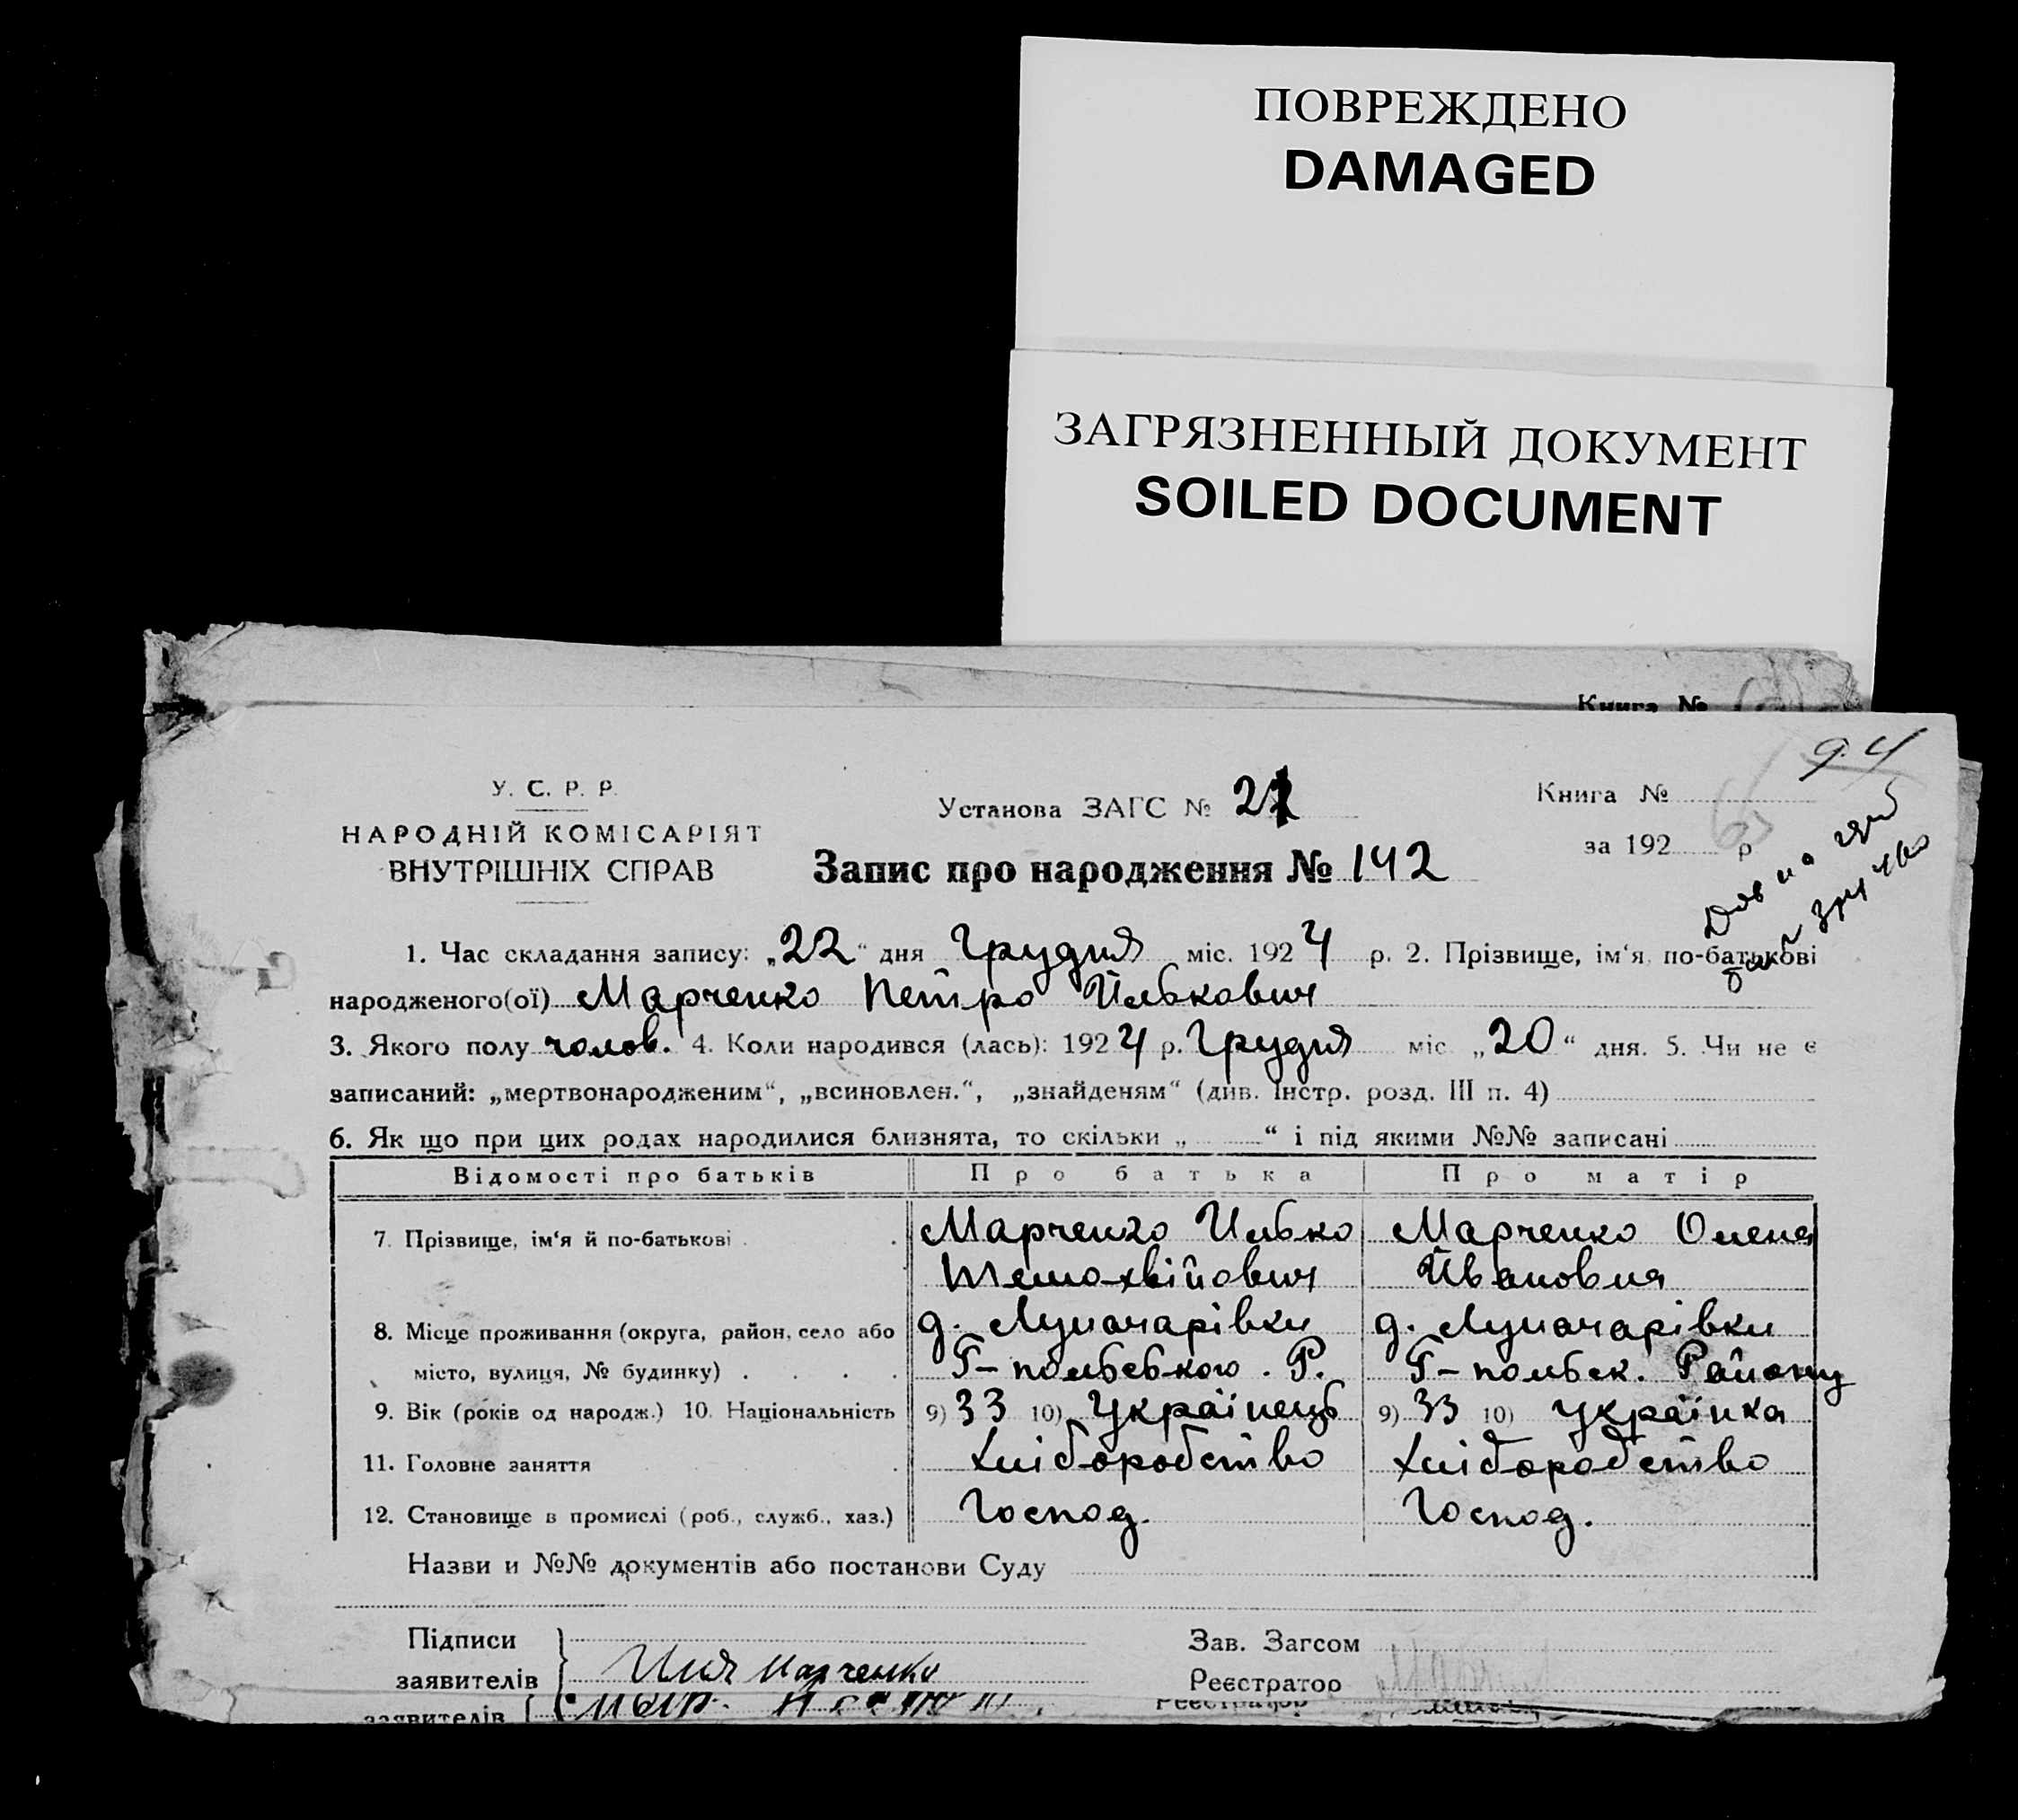 ПОВРЕЖДЕНО
DAMAGED
ЗАГРЯЗНЕННЫЙ ДОКУМЕНТ
SOILED DOCUMENT
Книга №
94
У. С. Р. Р.
НАРОДНІЙ КОМІСАРІЯТ
ВНУТРІШНІХ СПРАВ
Установа ЗАГС № 22
Запис про народження № 142
Книга №
за 192 р
1. Час складання запису: „22“ дня Грудня міс. 1924 р. 2. Прізвище, ім‘я по-батькові
народженого(ої) Марченко Петро Йлькович
3. Якого полу чолов. 4. Коли народився (лась): 1924 р. Грудня міс „20“ дня. 5. Чи не є
записаний: „мертвонародженим“, „всиновлен.“, „знайденям“ (див. Інстр. розд. III п. 4)
6. Як що при цих родах народилися близнята, то скільки „ “ і під якими №№ записані
Відомості про батьків Про батька Про матір
7. Прізвище, ім‘я й по-батькові Марченко Илько Марченко Олена
Йвановня
8. Місце проживання (округа, район, село або д. Луначарівки д. Луначарівки
місто, вулиця, № будинку) Г-польського. Р. Г-польск. Району
9. Вік (років од народж.) 10. Національність 9) 33 10) Українець 9) 33 10) Українка
11. Головне заняття Хліборобство Хліборобство
12. Становище в промислі (роб., служб., хаз.) Господ. Господ.
Назви и №№ документів або постанови Суду
Підписи
заявителів Илля Марченко
Зав. Загсом
Реєстратор
заявителів
Реєстратор